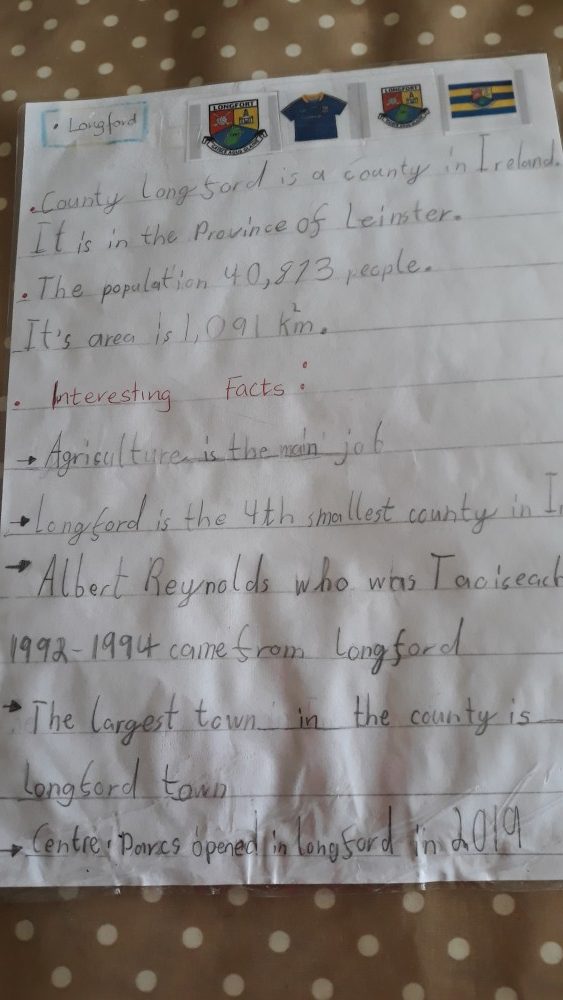 LONGFORT
LONGFORT
• Longford
• County Longford is a county in Ireland.
It is in the Province of Leinster.
• The population 40,873 people.
It's area is 1,091 km².
• Interesting Facts:
→ Agriculture is the main job
→ Longford is the 4th smallest county in Ir
→ Albert Reynolds who was Taoiseach
1992-1994 came from Longford
→ The largest town in the county is
Longford town
→ Centre Parcs opened in longford in 2019